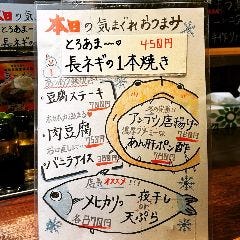 本日の気まぐれおつまみ
とろあま〜♡
450円
長ネギの1本焼き
豆腐ステーキ
肉豆腐
750円
バニラアイス
380円
アンコウ唐揚げ
780円
あん肝ポン酢
店長オススメ!!!
メヒカリ一夜干し
or
天ぷら
各770円